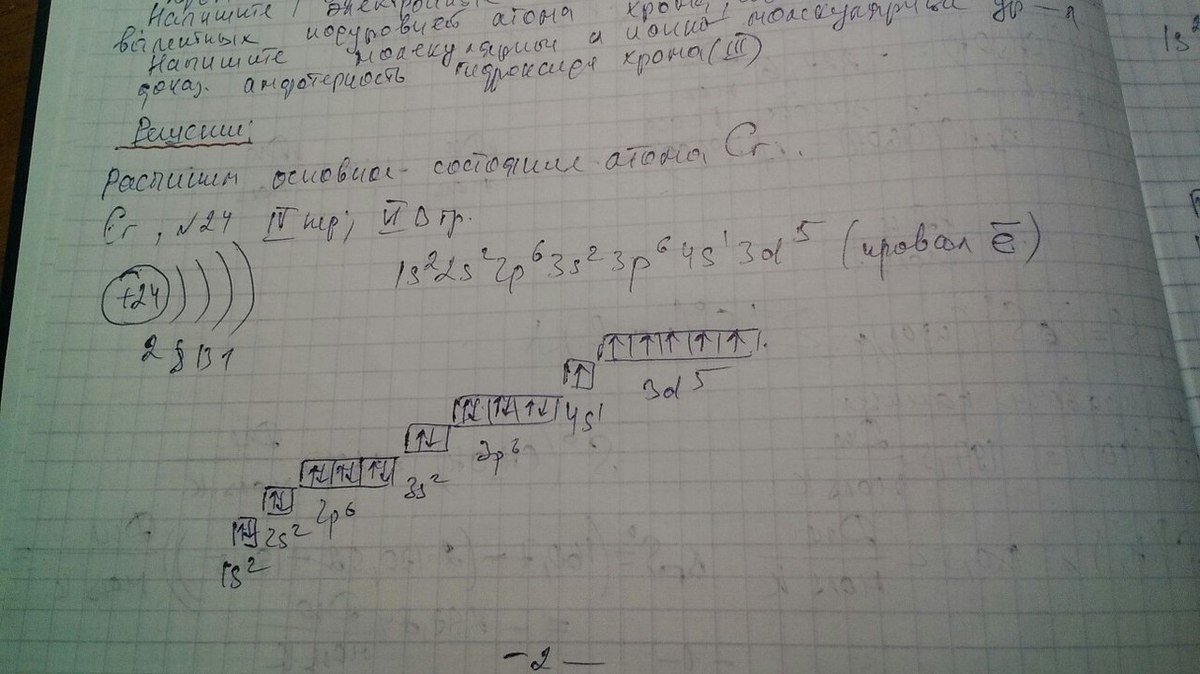 Напишите электронные
валентных подуровней атома хрома,
Напишите молекулярные и ионно-молекулярные ур-я
доказ. амфотерность гидроксида хрома (III)
1s²
Решение:
Распишем основное состояние атома Cr.
Cr, №24 IV пер; VI B гр.
+24 ) ) ) )
2 8 13 1
1s² 2s² 2p⁶ 3s² 3p⁶ 4s¹ 3d⁵ (провал ē)
↑ ↑ ↑ ↑ ↑
3d⁵
↑
4s¹
↑↓ ↑↓ ↑↓
3p⁶
↑↓
3s²
↑↓ ↑↓ ↑↓
2p⁶
↑↓
2s²
↑↓
1s²
-2-